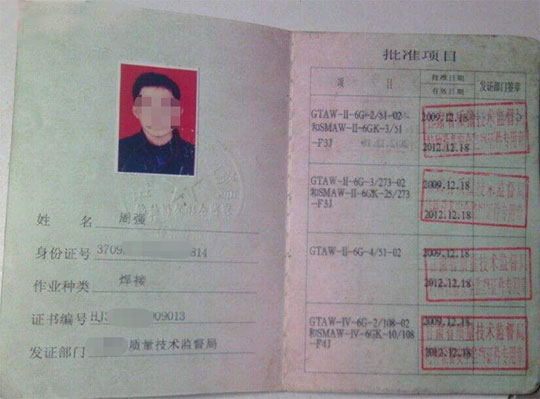 姓 名 周强
身份证号 3709 814
作业种类 焊接
证书编号 HJ 009013
发证部门 质量技术监督局
批准项目
项 目 批准日期 有效日期 发证部门签章
GTAW-II-6G-2/51-02
和SMAW-II-6GK-3/51
-F3J
2009.12.18
2012.12.18
GTAW-II-6G-3/273-02
和SMAW-II-6GK-25/273
-F3J
2009.12.18
2012.12.18
GTAW-II-6G-4/51-02
2009.12.18
2012.12.18
质量技术监督局
GTAW-IV-6G-2/108-02
和SMAW-IV-6GK-10/108
-F4J
2009.12.18
2012.12.18
质量技术监督局